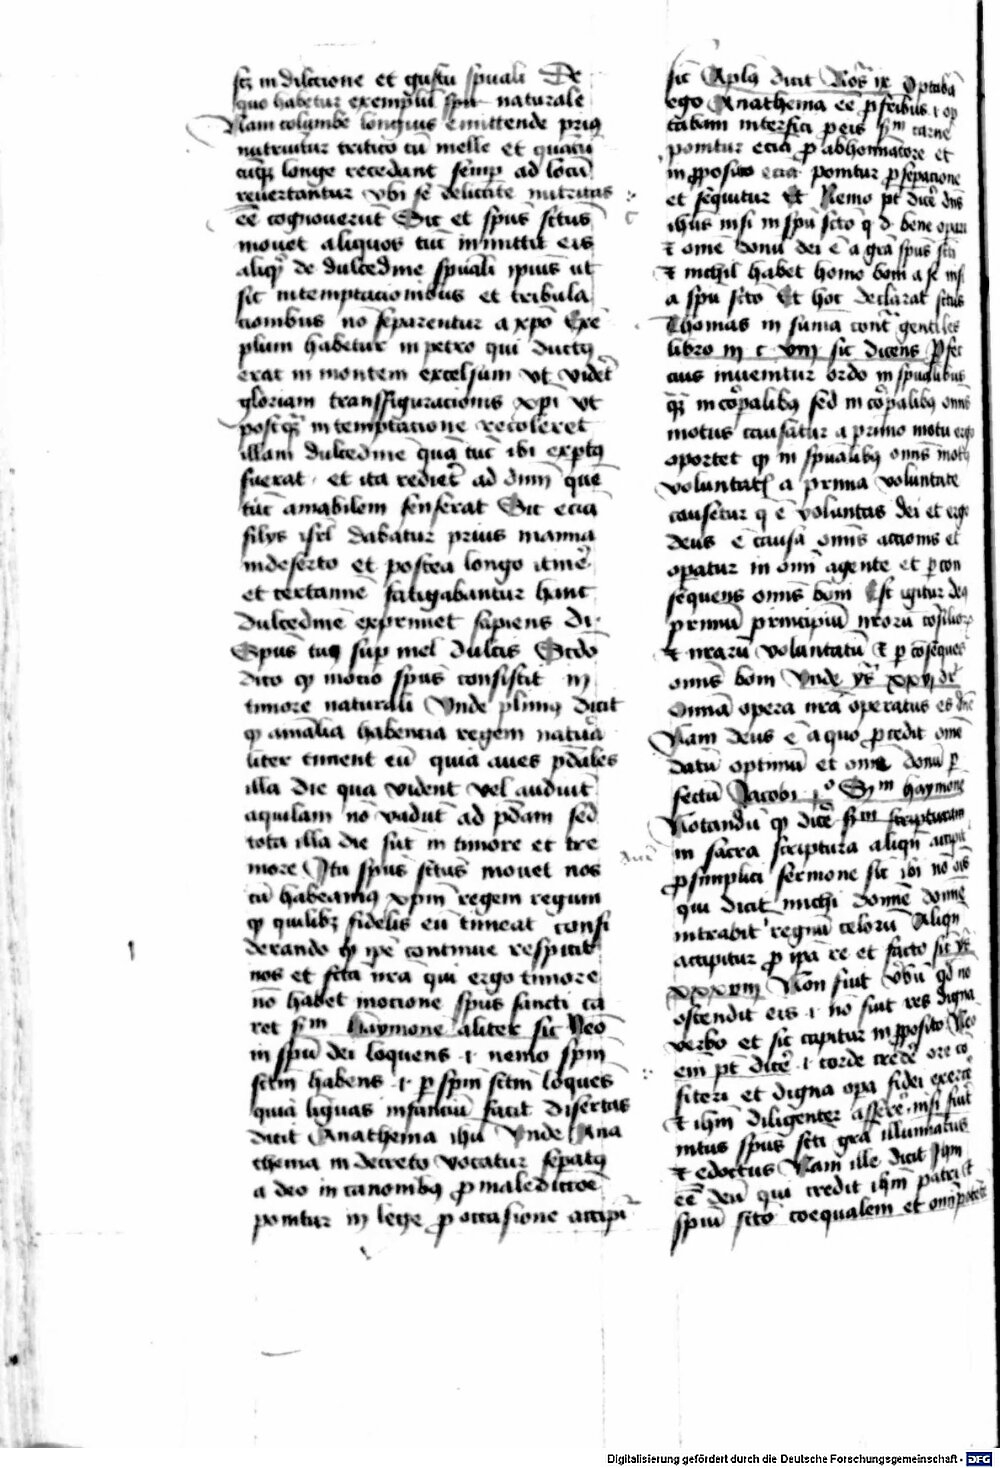 scz in dilectione et gustu spūali De
quo habetur exemplū naturale
Nam columbe longius emittende priꝰ
nutriuntur tritico cū melle et
longe recedant semꝑ ad locū
revertantur vbi se delicate nutritas
eē cognoverūt Sic et spūs sctūs
movet aliquos tūc inmittit eis
aliqd de dulcedine spūali ipīus ut
sic in temptacionibus et tribula
cionibus nō separentur a xpō Exē
plum habetur in petro qui ductꝰ
erat in montem excelsum vt videt
gloriam transffiguracionis xpī vt
postqꝫ in temptacione recoleret
illam dulcedinē quā tūc ibi exptꝰ
fuerat et ita rediret ad dnm quē
tūc amabilem senserat Sic ecia
filijs isrl dabatur prius manna
in deserto et postea longo itinē
et certamine fatigabantur hanc
dulcedinē exprimit sapiens di
Spūs tuꝰ suꝑ mel dulcis Scdō
dico qꝫ motio spūs consistit in
timore naturali Vnde pliniꝰ dicit
qꝫ aīmalia habencia regem natūa
liter timent eū quia aves pdales
illa die qua vident vel audiūt
aquilam nō vadūt ad pdam sed
tota illa die sūt in timore et tre
more Ita spūs sctūs movet nos
cū habeamꝰ xpm regem regum
qꝫ quilibꝫ fidelis eū timeat consi
derando qꝫ ipē continue respicit
nos et fcta nrā qui ergo timore
nō habet motione spūs sancti ca
ret Scdm haymonē aliter sic Nēo
in spū dei loquens .i. nemo spm
sctm habens .i. ꝑ spm sctm loquēs
quia linguas infanciū facit disertas
dicit Anathema ihū Vnde Ana
thema in decreto vocatur sepatꝰ
a deo in canonibꝰ ꝓ maledictōe
ponitur in lege ꝓ occasione accipi
sic Aplꝰ dicit Roꝫ ix Optabā
ego Anathema eē ꝓ fribus .i. op
tabam interfici ꝓ eis scdm carnē
ponitur ecia ꝓ abhominatore et
in ꝓposito ecia ponitur ꝓ sepacione
et sequitur Et Nemo pt dicē dns
ihūs nisi in spū sctō q d bene opari
et omē donū dei ē a grā spūs scti
Et nichil habet homo boni a se nisi
a spū sctō Et hoc declarat sctūs
Thomas in suma contra gentiles
libro iij c viij sic dicens
invenitur ordo in spualibus
in corpalibꝰ sed in corpalibꝰ omis
motus causatur a primo motu ergo
oportet qꝫ in spūalibꝰ omis motꝰ
voluntatis a prima voluntate
causetur q ē voluntas dei et ergo
deus ē causa omis accionis et
operatur in omi agente et ꝑ con
sequens omis boni Est igitur deꝰ
primū principiū nrorū cosiliorꝫ
et nrarū voluntatū et ꝑ cosequēs
omis boni Vnde ys xxvi dr
Omīa opera nrā operatus es dne
Nam deus ē a quo ꝓcedit omē
datū optimū et omē donū ꝑ
fectū Jacobi i° Scdm haymonē
Notandū qꝫ dicē scdm scripturam
in sacra scriptura aliqn accipit
ꝓ simplici sermone sic ibi nō ois
qui dicit michi domīe domīe
intrabit regnū celorū Aliqn
accipitur ꝓ ipa re et facto sic ys
xxxviij Non fiut v̄bū qd nō
ostendit eis .i. nō fiut res digna
verbo et sic capitur in ꝓposito Neo
em pt dicē .i. corde credē ore cō
fiteri et digna opa fidei exercē
et ihm diligenter asserē nisi fiūt
intus spūs scti grā illuminatus
et edoctus Nam ille dicit ihm
eē deū qui credit ihm patri et
spiū sctō coequalem et omīpotentē
Digitalisierung gefördert durch die Deutsche Forschungsgemeinschaft - DFG